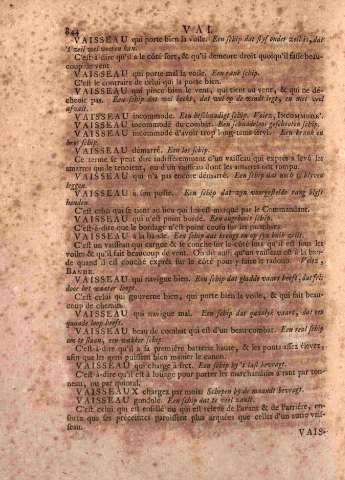 844 VAI
VAISSEAU qui porte bien la voile. Een schip dat styf onder zeil is, dat
't zeil wel voeren kan.
C'est-à-dire qu'il a le côté fort, & qu'il demeure droit quoiqu'il fasse beau-
coup de vent.
VAISSEAU qui porte mal la voile. Een rank schip.
C'est le contraire de celui qui porte bien la voile.
VAISSEAU qui pince bien le vent, qui tient au vent, & qui ne dé-
choit pas. Een schip dat wel by de windt legt, en niet veel
afwalt.
VAISSEAU incommodé. Een beschaadigt schip. Voïez, INCOMMODE'.
VAISSEAU incommodé du combat. Een schaadeloos geschooten schip.
VAISSEAU incommodé d'avoir trop long-tems servi. Een krank en
schip.
VAISSEAU démarré. Een los schip.
Ce terme se peut dire indifféremment d'un vaisseau qui exprès a levé ses
amarres qui le tenoient, ou d'un vaisseau dont les amarres ont rompu.
VAISSEAU qui n'a pas encore démarré. Een schip dat noch is blyven
leggen.
VAISSEAU à son poste. Een schip dat zyn voorgestelde rang blyft
houden.
C'est celui qui se tient au lieu qui lui est marqué par le Commandant.
VAISSEAU qui n'est point bordé. Een ongeboeit schip.
C'est-à-dire que le bordage n'est point cousu sur les membres.
VAISSEAU à la bande. Een schip dat krengt en op zyn zijde zeilt.
C'est un vaisseau qui cargue & se couche sur le côté lors qu'il est sous les
voiles & qu'il fait beaucoup de vent. On dit aussi qu'un vaisseau est à la ban-
de quand il est couché exprès sur le côté pour y faire le radoub. Voïez,
BANDE.
VAISSEAU qui navigue bien. Een schip dat gladde vaart heeft, dat fris
door het water loopt.
C'est celui qui gouverne bien, qui porte bien la voile, & qui fait beau-
coup de chemin.
VAISSEAU qui navigue mal. Een schip dat qualyk vaart, dat een
quaade loop heeft.
VAISSEAU beau de combat qui est d'un beau combat. Een reëel schip
om te slaan, een wakker schip.
C'est-à-dire qu'il a sa première batterie haute, & les ponts assez élevez,
afin que les gens puissent bien manier le canon.
VAISSEAU qui charge à fret. Een schip by 't last bevragt.
C'est-à-dire qu'il est à louage pour porter les marchandises à tant par ton-
neau, ou par quintal.
VAISSEAUX chargez par mois. Schepen by de maandt bevragt.
VAISSEAU gondolé. Een schip dat te veel zeeft.
C'est celui qui est enseillé ou qui est relevé de l'avant & de l'arriére, en-
sorte que ses préceintes paroissent plus arquées que celles d'un autre vais-
seau.
VAIS-